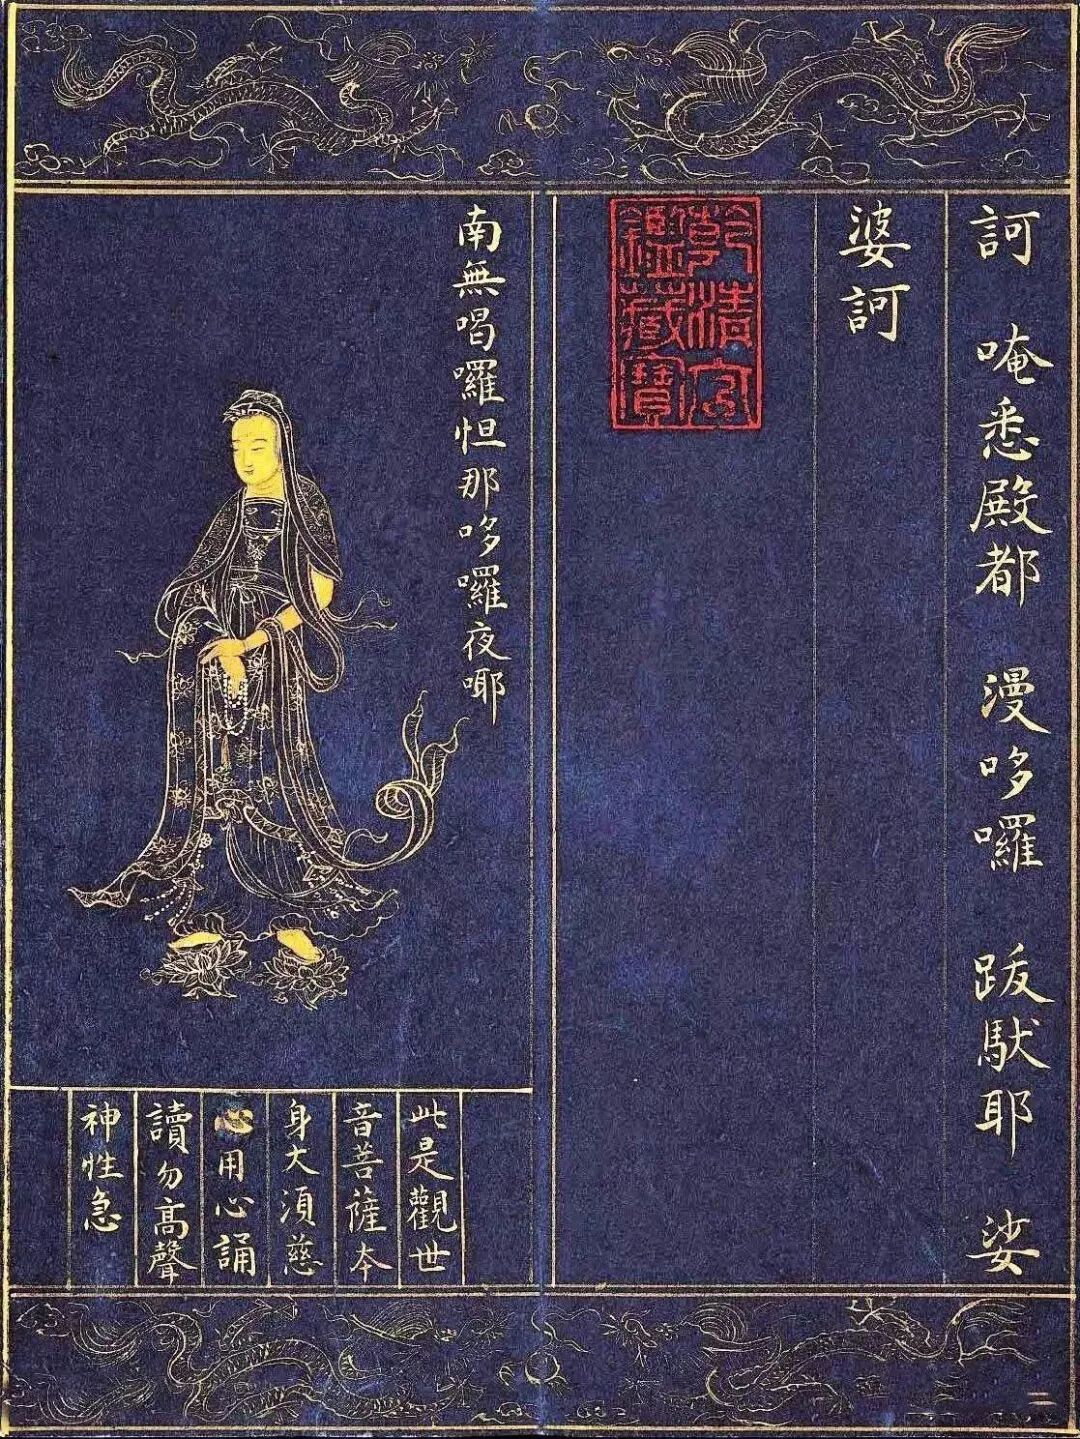 訶 唵悉殿都 漫哆囉 跋馱耶 娑
婆訶
乾清宮
鑑藏寶
南無喝囉怛那哆囉夜㖿
此是觀世
音菩薩本
身大須慈
心用心誦
讀勿高聲
神性急
二